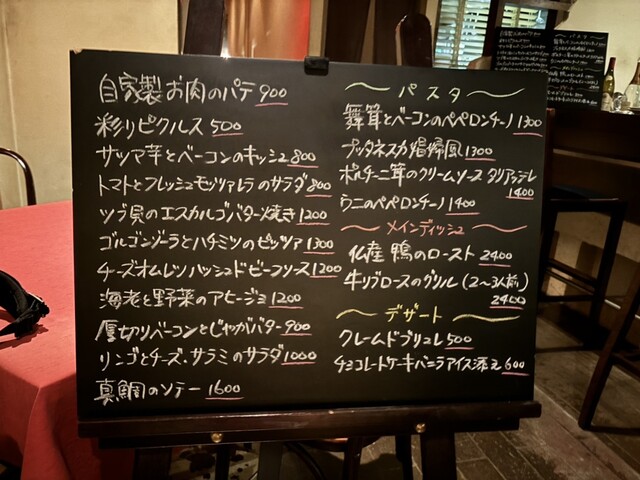 自家製お肉のパテ 900
彩りピクルス 500
サツマ芋とベーコンのキッシュ 800
トマトとフレッシュモッツァレラのサラダ 800
ツブ貝のエスカルゴバター焼き 1200
ゴルゴンゾーラとハチミツのピッツァ 1300
チーズオムレツハッシュドビーフソース 1200
海老と野菜のアヒージョ 1200
厚切りベーコンとじゃがバター 900
リンゴとチーズ・サラミのサラダ 1000
真鯛のソテー 1600
パスタ
舞茸とベーコンのペペロンチーノ 1300
プッタネスカ娼婦風 1300
ポルチーニ茸のクリームソース タリアッテレ
1400
ウニのペペロンチーノ 1400
メインディッシュ
仏産 鴨のロースト 2400
牛リブロースのグリル (2〜3人前)
2400
デザート
クレームドブリュレ 500
チョコレートケーキバニラアイス添え 600
パスタ